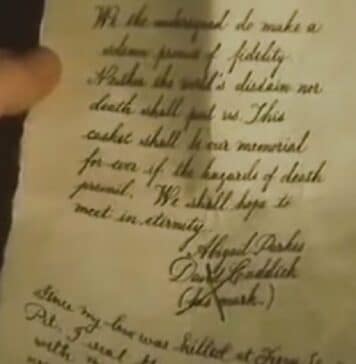 We the undersigned do make a
solemn promise of fidelity.
Neither the world's disdain nor
death shall part us. This
casket shall be our memorial
for ever if the hazards of death
prevail. We shall hope to
meet in eternity.
Abigail Parkes
David Caddick
(his mark.)
Since my love was killed at
Pit, I seal
with